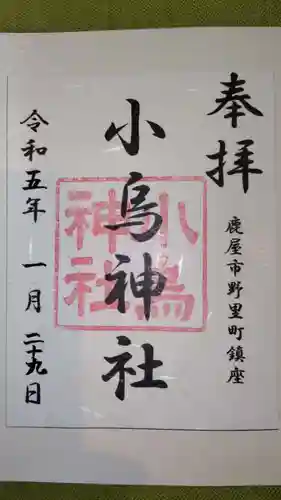 奉拝
鹿屋市野里町鎮座
小烏神社
小烏神社
令和五年 一月 二十九日